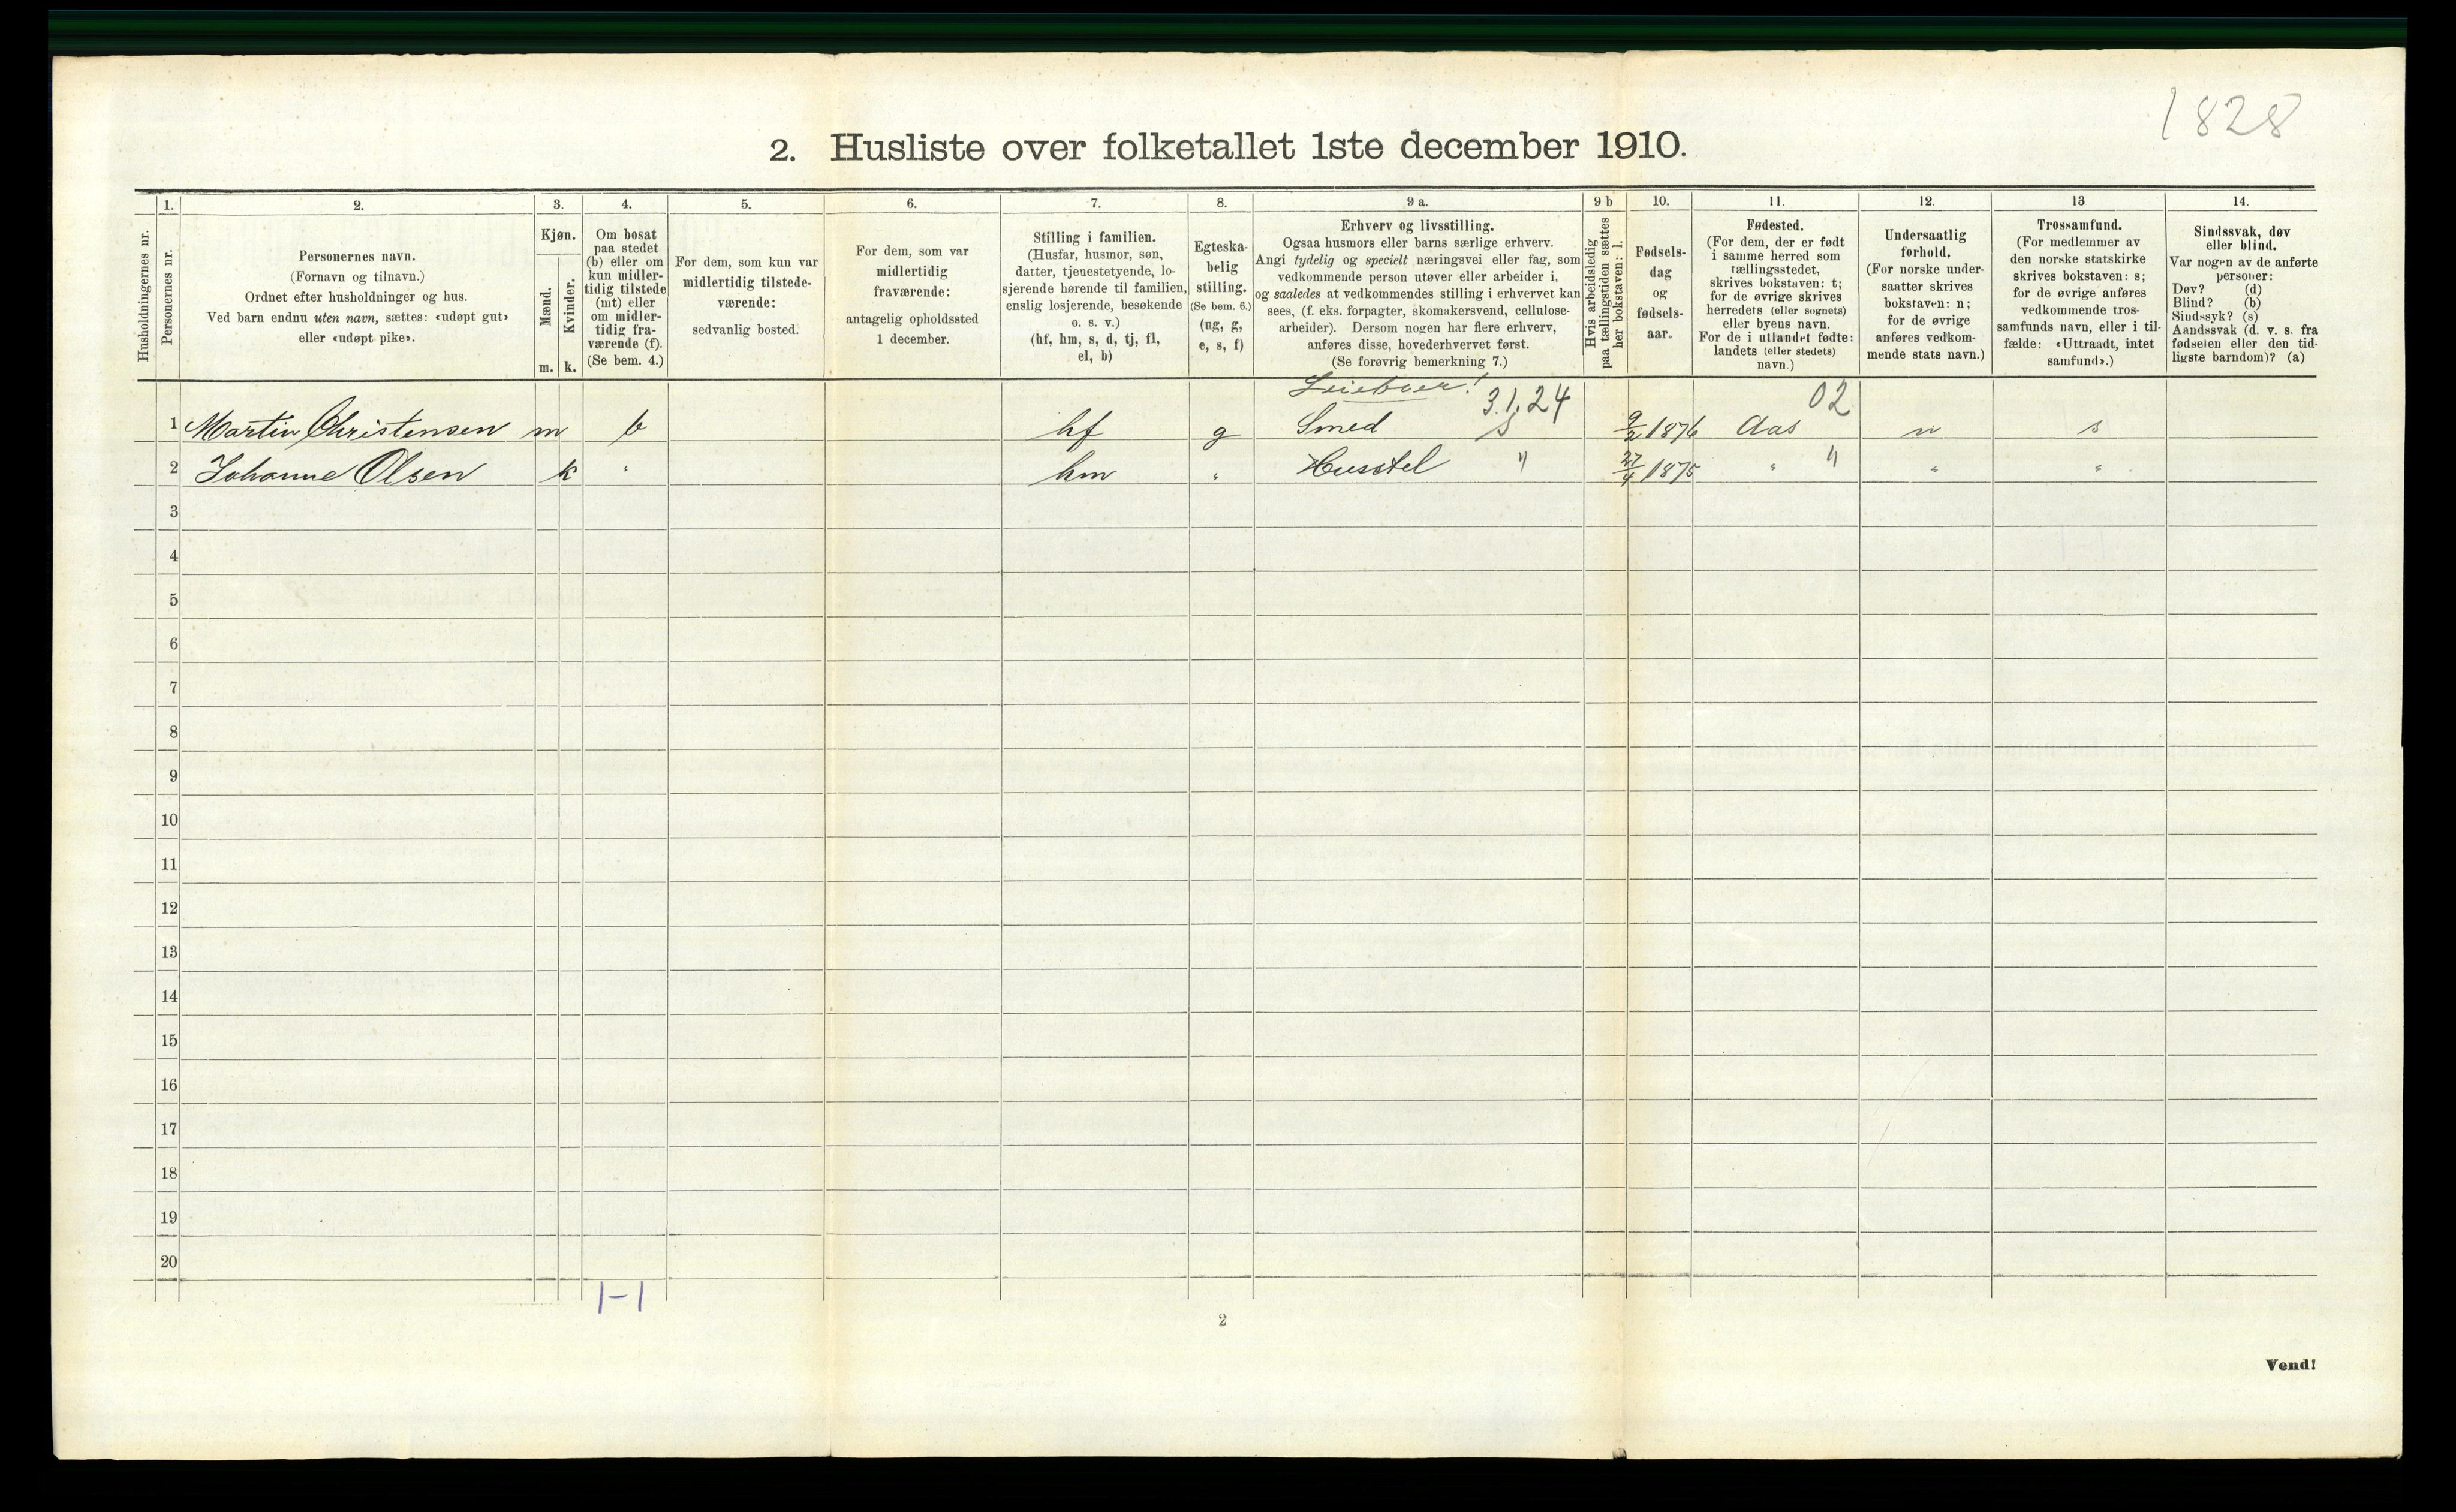 1828
2. Husliste over folketallet 1ste december 1910.
Husholdningernes nr.
1.
Personernes nr.
2.
Personernes navn.
(Fornavn og tilnavn.)
Ordnet efter husholdninger og hus.
Ved barn endnu uten navn, sættes: «udøpt gut»
eller «udøpt pike».
3.
Kjøn.
Mænd.
Kvinder.
m. k.
4.
Om bosat
paa stedet
(b) eller om
kun midler-
tidig tilstede
(mt) eller
om midler-
tidig fra-
værende (f).
(Se bem. 4.)
5.
For dem, som kun var
midlertidig tilstede-
værende:
sedvanlig bosted.
6.
For dem, som var
midlertidig
fraværende:
antagelig opholdssted
1 december.
7.
Stilling i familien.
(Husfar, husmor, søn,
datter, tjenestetyende, lo-
sjerende hørende til familien,
enslig losjerende, besøkende
o. s. v.)
(hf, hm, s, d, tj, fl,
el, b)
8.
Egteska-
belig
stilling.
(Se bem. 6.)
(ug, g,
e, s, f)
9 a.
Erhverv og livsstilling.
Ogsaa husmors eller barns særlige erhverv.
Angi tydelig og specielt næringsvei eller fag, som
vedkommende person utøver eller arbeider i,
og saaledes at vedkommendes stilling i erhvervet kan
sees, (f. eks. forpagter, skomakersvend, cellulose-
arbeider). Dersom nogen har flere erhverv,
anføres disse, hovederhvervet først.
(Se forøvrig bemerkning 7.)
9 b
Hvis arbeidsledig
paa tællingstiden sættes
her bokstaven: l.
10.
Fødsels-
dag
og
fødsels-
aar.
11.
Fødested.
(For dem, der er født
i samme herred som
tællingsstedet,
skrives bokstaven: t;
for de øvrige skrives
herredets (eller sognets)
eller byens navn.
For de i utlandet fødte:
landets (eller stedets)
navn.)
12.
Undersaatlig
forhold.
(For norske under-
saatter skrives
bokstaven: n;
for de øvrige
anføres vedkom-
mende stats navn.)
13
Trossamfund.
(For medlemmer av
den norske statskirke
skrives bokstaven: s;
for de øvrige anføres
vedkommende tros-
samfunds navn, eller i til-
fælde: «Uttraadt, intet
samfund».)
14.
Sindssvak, døv
eller blind.
Var nogen av de anførte
personer:
Døv? (d)
Blind? (b)
Sindssyk? (s)
Aandssvak (d. v. s. fra
fødselen eller den tid-
ligste barndom)? (a)
3.1.24 02
1 Martin Christensen m b hf g Smed s 9/2 1876 Aas n s
2 Johanne Olsen k " hm " Husstel " 27/4 1875 " " " "
3
4
5
6
7
8
9
10
11
12
13
14
15
16
17
18
19
20
1-1
2
Vend!